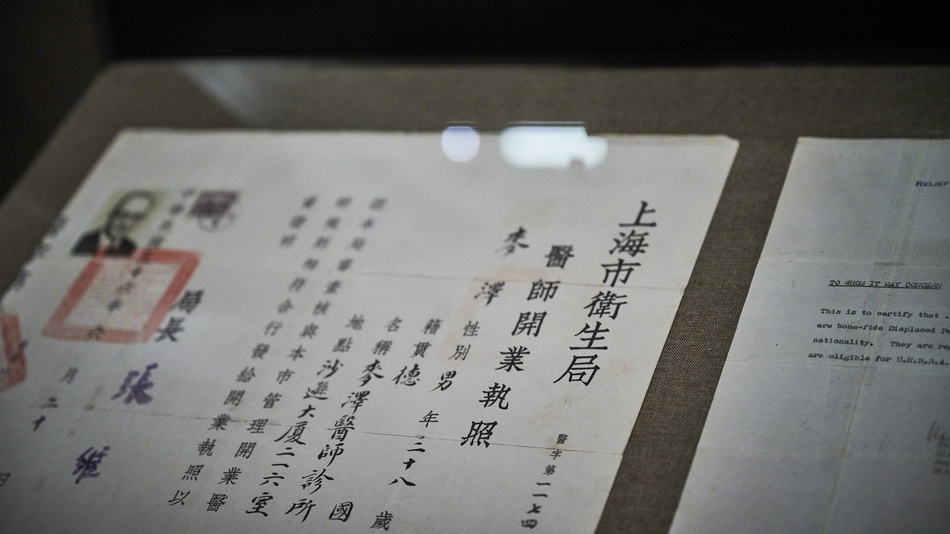 上海市衛生局
醫師開業執照
醫字第一一七四
麥澤 性別男 年二十八歲
籍貫德國
名稱麥澤醫師診所
地點沙遜大廈二一六室
本局審查核與本市管理開業醫
規則相符合行發給開業執照以
局長 張維
月二十
日
RELIEF
TO WHOM IT MAY CONCERN
This is to certify that
are bona-fide Displaced
nationality. They are
are eligible for U.N.R.R.A.